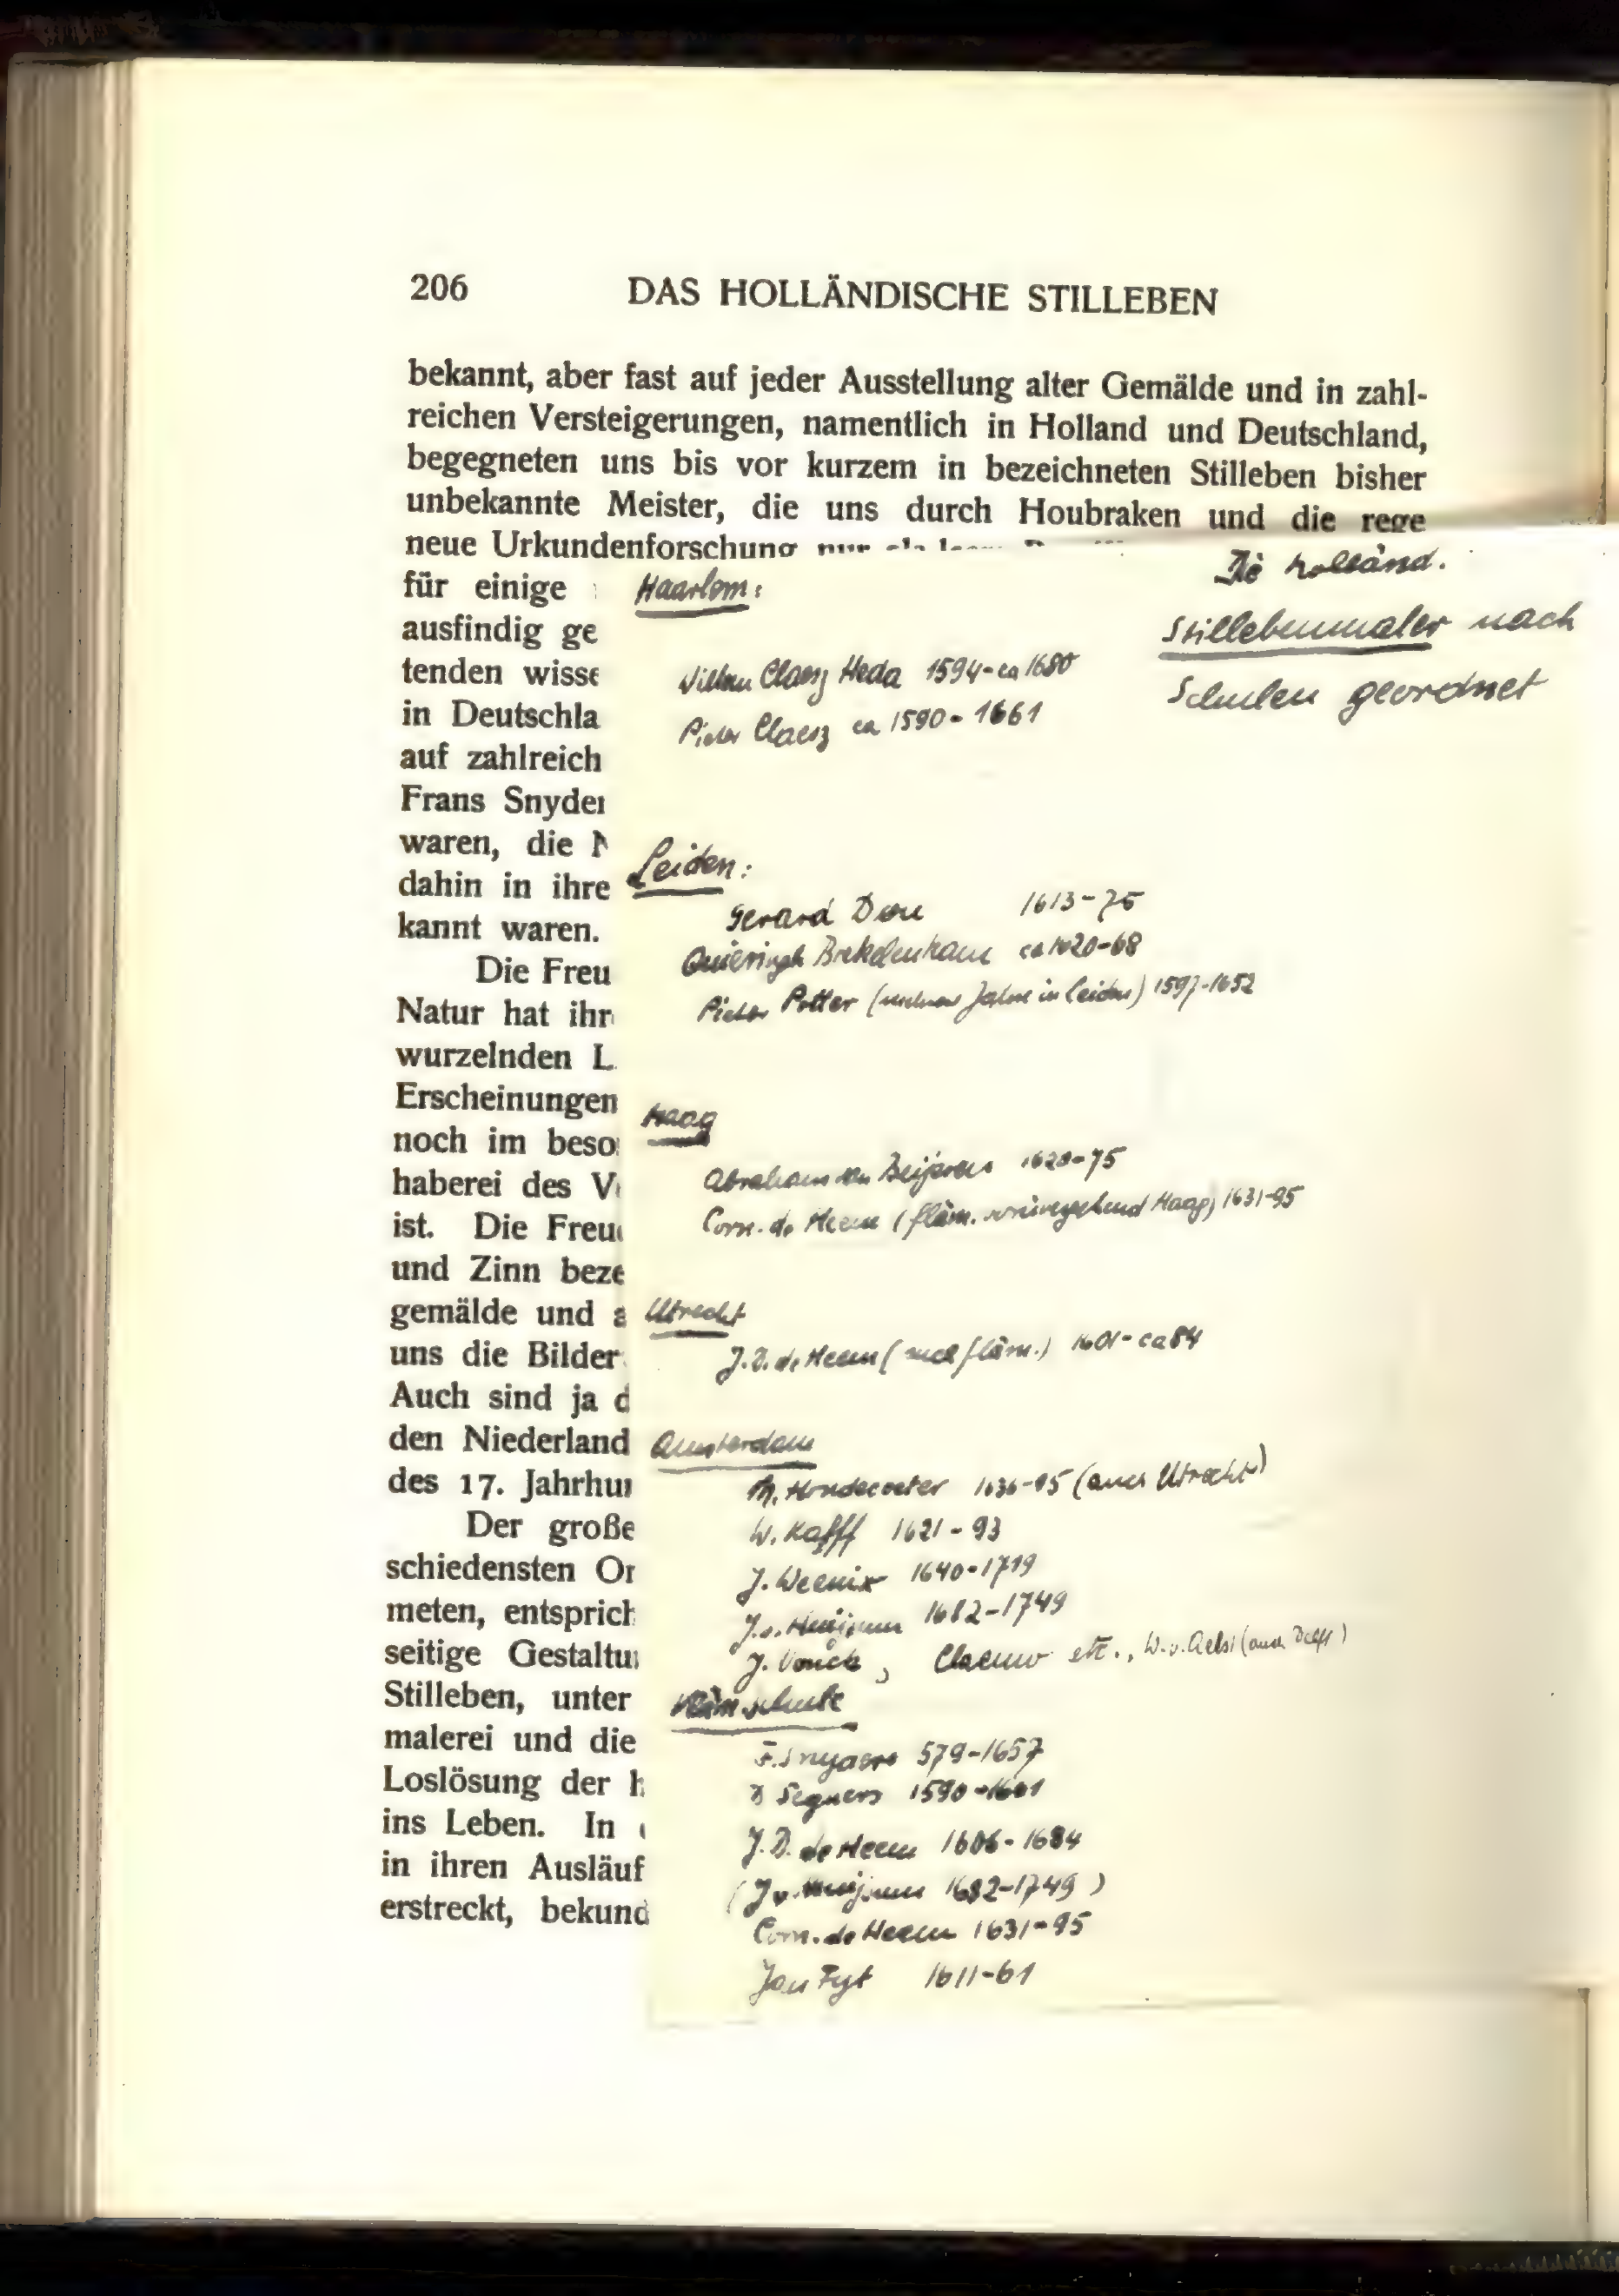 206 DAS HOLLÄNDISCHE STILLEBEN
bekannt, aber fast auf jeder Ausstellung alter Gemälde und in zahl-
reichen Versteigerungen, namentlich in Holland und Deutschland,
begegneten uns bis vor kurzem in bezeichneten Stilleben bisher
unbekannte Meister, die uns durch Houbraken und die rege
neue Urkundenforschung nur
für einige
ausfindig ge
tenden wisse
in Deutschla
auf zahlreich
Frans Snyder
waren, die
dahin in ihre
kannt waren.
Die Freu
Natur hat ihr
wurzelnden L
Erscheinungen
noch im beso
haberei des V
ist. Die Freu
und Zinn beze
gemälde und a
uns die Bilder
Auch sind ja d
den Niederland
des 17. Jahrhu
Der große
schiedensten Or
meten, entsprich
seitige Gestaltu
Stilleben, unter
malerei und die
Loslösung der h
ins Leben. In
in ihren Ausläuf
erstreckt, bekund
Die holländ.
Stillebenmaler nach
Schulen geordnet
Haarlem:
Willem Claesz Heda 1594-ca 1680
Pieter Claesz ca 1590-1661
Leiden:
Gerard Dou 1613-75
Quieringh Brekelenkam ca 1620-68
Pieter Potter (mehrere Jahre in Leiden) 1597-1652
Haag
Abraham van Beijeren 1620-75
Corn. de Heem (fläm. vorübergehend Haag) 1631-95
Utrecht
J.D. de Heem (auch fläm.) 1601-ca 84
Amsterdam
M. Hondecoeter 1636-95 (auch Utrecht)
W. Kalff 1621-93
J. Weenix 1640-1719
J.v. Huijsum 1682-1749
J. Vonck, etc., W.v. Aelst (auch Delft)
Fläm. Schule
F. Snyders 579-1657
D Seghers 1590-1661
J.D. de Heem 1606-1684
(J v. Huijsum 1682-1749)
Corn. de Heem 1631-95
Jan Fyt 1611-61